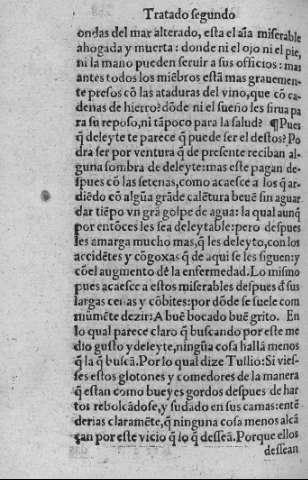 Tratado segundo
ondas del mar alterado, esta el aĩa miserable
ahogada y muerta: donde ni el ojo ni el pie,
ni la mano pueden seruir a sus officios: mas
antes todos los miẽbros estã mas grauemen-
te presos cõ las ataduras del vino, que cõ ca-
denas de hierro? dõde ni el sueño les sirua pa
ra su reposo, ni tãpoco para la salud? ¶Pues
q̃ deleyte te parece q̃ puede ser el destos? Po
dra ser por ventura q̃ de presente reciban al-
guna sombra de deleyte: mas este pagan de-
spues cõ las setenas, como acaesce a los q̃ ar-
diẽdo cõ algũa grãde calẽtura beuẽ sin aguar
dar tiẽpo vn grã golpe de agua: la qual aunq̃
por entõces les sea deleytable: pero despues
les amarga mucho mas, q̃ les deleyto, con los
accidẽtes y cõgoxas q̃ de aqui se les siguen: y
cõel augmento dẽ la enfermedad. Lo mismo
pues acaesce a estos miserables despues đ sus
largas cenas y cõbites: por dõde se suele com
mũmẽte dezir: A buẽ bocado buẽ grito. En
lo qual parece claro q̃ buscando por este me
dio gusto y deleyte, ningũa cosa hallã menos
q̃ la q̃ buscã. Por lo qual dize Tullio: Si vies-
ses estos glotones y comedores de la manera
q̃ estan como bueyes gordos despues de har
tos rebolcãdose, y sudado en sus camas: entẽ
derias claramẽte, q̃ ninguna cosa menos alcã
çan por este vicio q̃ lo q̃ dessẽa. Porque ellos
dessean